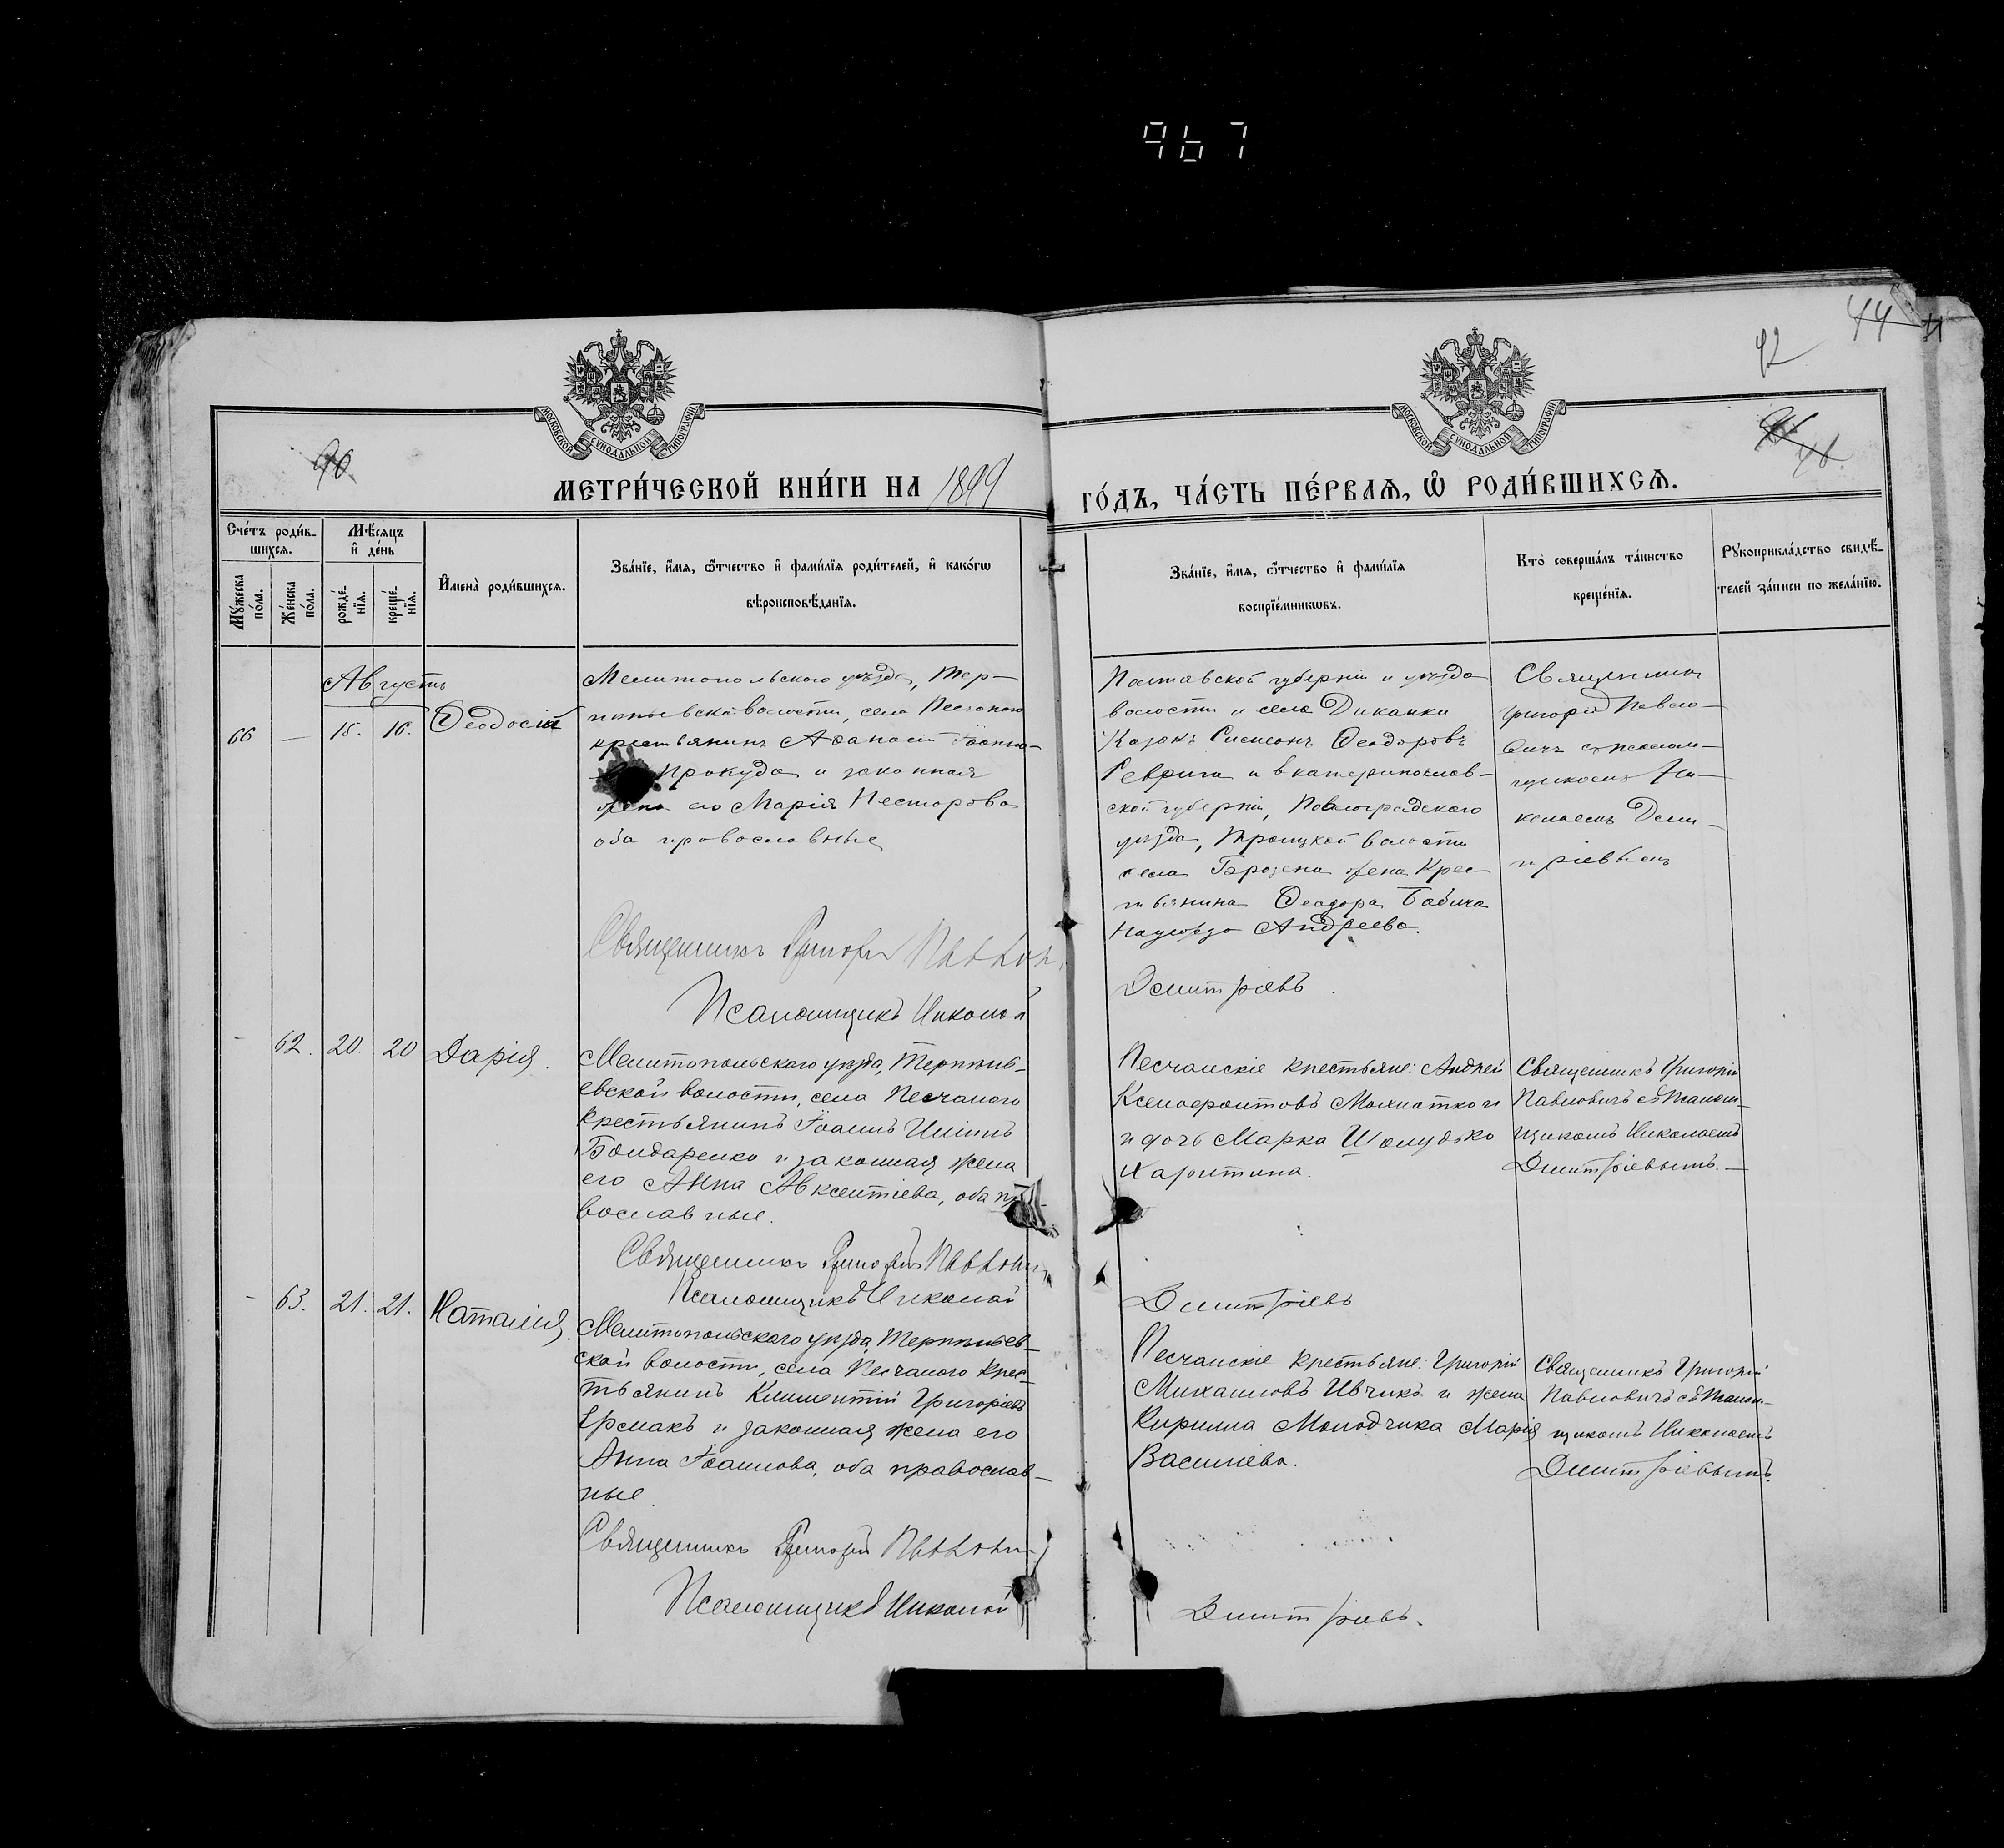 967
44
42
МОСКОВСКОЙ СѴНОДАЛЬНОЙ ТИПОГРАФІИ
МОСКОВСКОЙ СѴНОДАЛЬНОЙ ТИПОГРАФІИ
МЕТРИ́ЧЕСКОЙ КНИ́ГИ НА 1899
ГО́ДЪ, ЧА́СТЬ ПЕ́РВАЯ, Ѽ РОДИ́ВШИХСЯ.
Сче́тъ роди́в-
шихся.
Мѣ́сяцъ
и҆ де́нь
Му́жеска по́ла.
Же́нска по́ла.
рожде́-
нїя.
креще́-
нїя.
И҆мена̀ роди́вшихся.
Зва́нїе, и҆́мя, ѻ҆́тчество и҆ фамі́лїя роди́телей, и҆ како́гѡ
вѣроисповѣ́данїя.
Зва́нїе, и҆́мя, ѻ҆́тчество и҆ фамі́лїя
воспрїе́мникѡвъ.
Кто̀ соверша́лъ та́инство
креще́нїя.
Рꙋкоприкла́дство свидѣ́-
телей за́писи по жела́нїю.
Августъ
66 — 15. 16. Ѳеодосій
Мелитопольскаго уѣзда, Тер-
пѣньевской волости, села Песчанаго
крестьянинъ Аѳанасій Іоанно-
Прокуда и законная
жена его Марія Несторова
оба православные
Священникъ Григорій
Псаломщикъ Николай
Полтавской губерніи и уѣзда
волости и села Диканки
Казакъ Симеонъ Ѳеодоровъ
и Екатеринослав-
ской губерніи, Павлоградскаго
уѣзда, Троицкой волости
села жена Крес-
тьянина Ѳеодора Бабича
Надежда Андреева.
Дмитріевъ.
Священникъ
Григорій Павло-
вичъ съ псалом-
щикомъ Ни-
колаемъ Дми-
тріевымъ
- 62. 20. 20 Дарія.
Мелитопольскаго уѣзда, Терпѣнь-
евской волости, села Песчанаго
крестьянинъ Іоаннъ Ильинъ
Бондаренко и законная жена
его Анна Авксентіева, оба пра-
вославные.
Священникъ Григорій
Псаломщикъ Николай
Песчанскіе крестьяне: Андрей
Ксенофонтовъ
и дочь Марка
Харитина.
Дмитріевъ
Священникъ Григорій
Павловичъ съ псалом-
щикомъ Николаемъ
Дмитріевымъ. —
- 63. 21. 21. Наталія.
Мелитопольскаго уѣзда, Терпѣньев-
ской волости, села Песчанаго крес-
тьянинъ Климентій Григорьевъ
Ермакъ и законная жена его
Анна Іоаннова, оба православ-
ные.
Священникъ Григорій
Псаломщикъ Николай
Песчанскіе крестьяне: Григорій
Михаиловъ Ивчикъ и жена
Кирилла Молодчика Марія
Васильева.
Дмитріевъ.
Священникъ Григорій
Павловичъ съ псалом-
щикомъ Николаемъ
Дмитріевымъ.